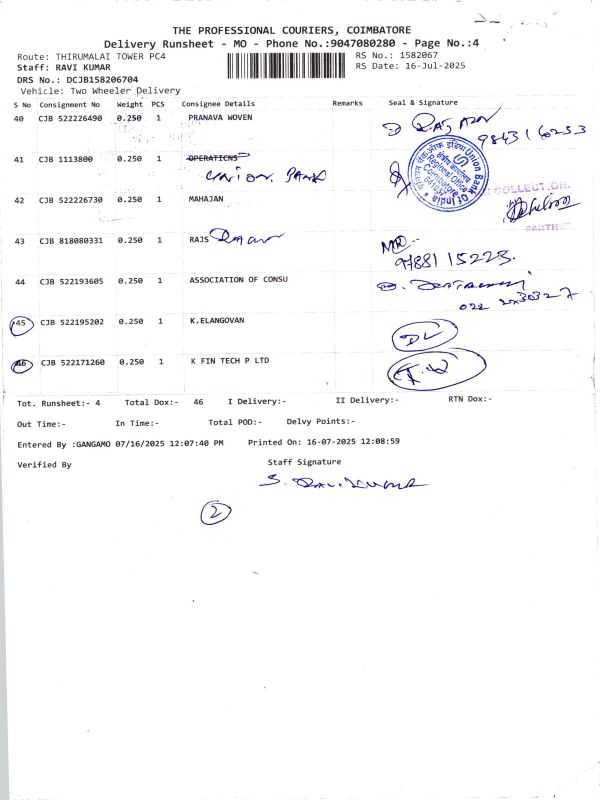 THE PROFESSIONAL COURIERS, COIMBATORE
Delivery Runsheet - MO - Phone No.:9047080280 - Page No.:4
Route: THIRUMALAI TOWER PC4
RS No.: 1582067
Staff: RAVI KUMAR
RS Date: 16-Jul-2025
DRS No.: DCJB158206704
Vehicle: Two Wheeler Delivery
S No Consignment No Weight PCS Consignee Details Remarks Seal & Signature
40 CJB 522226490 0.250 1 PRANAVA WOVEN
41 CJB 1113800 0.250 1 OPERATIONS
UNION BANK
Union Bank Of India
Regional Office
Coimbatore
42 CJB 522226730 0.250 1 MAHAJAN
COLLECTION
PARTNER
43 CJB 818080331 0.250 1 RAJS
9788115223.
44 CJB 522193605 0.250 1 ASSOCIATION OF CONSU
45 CJB 522195202 0.250 1 K.ELANGOVAN
DL
46 CJB 522171260 0.250 1 K FIN TECH P LTD
Tot. Runsheet:- 4 Total Dox:- 46 I Delivery:- II Delivery:- RTN Dox:-
Out Time:- In Time:- Total POD:- Delvy Points:-
Entered By :GANGAMO 07/16/2025 12:07:40 PM Printed On: 16-07-2025 12:08:59
Verified By Staff Signature
S. RAVIKUMAR
2